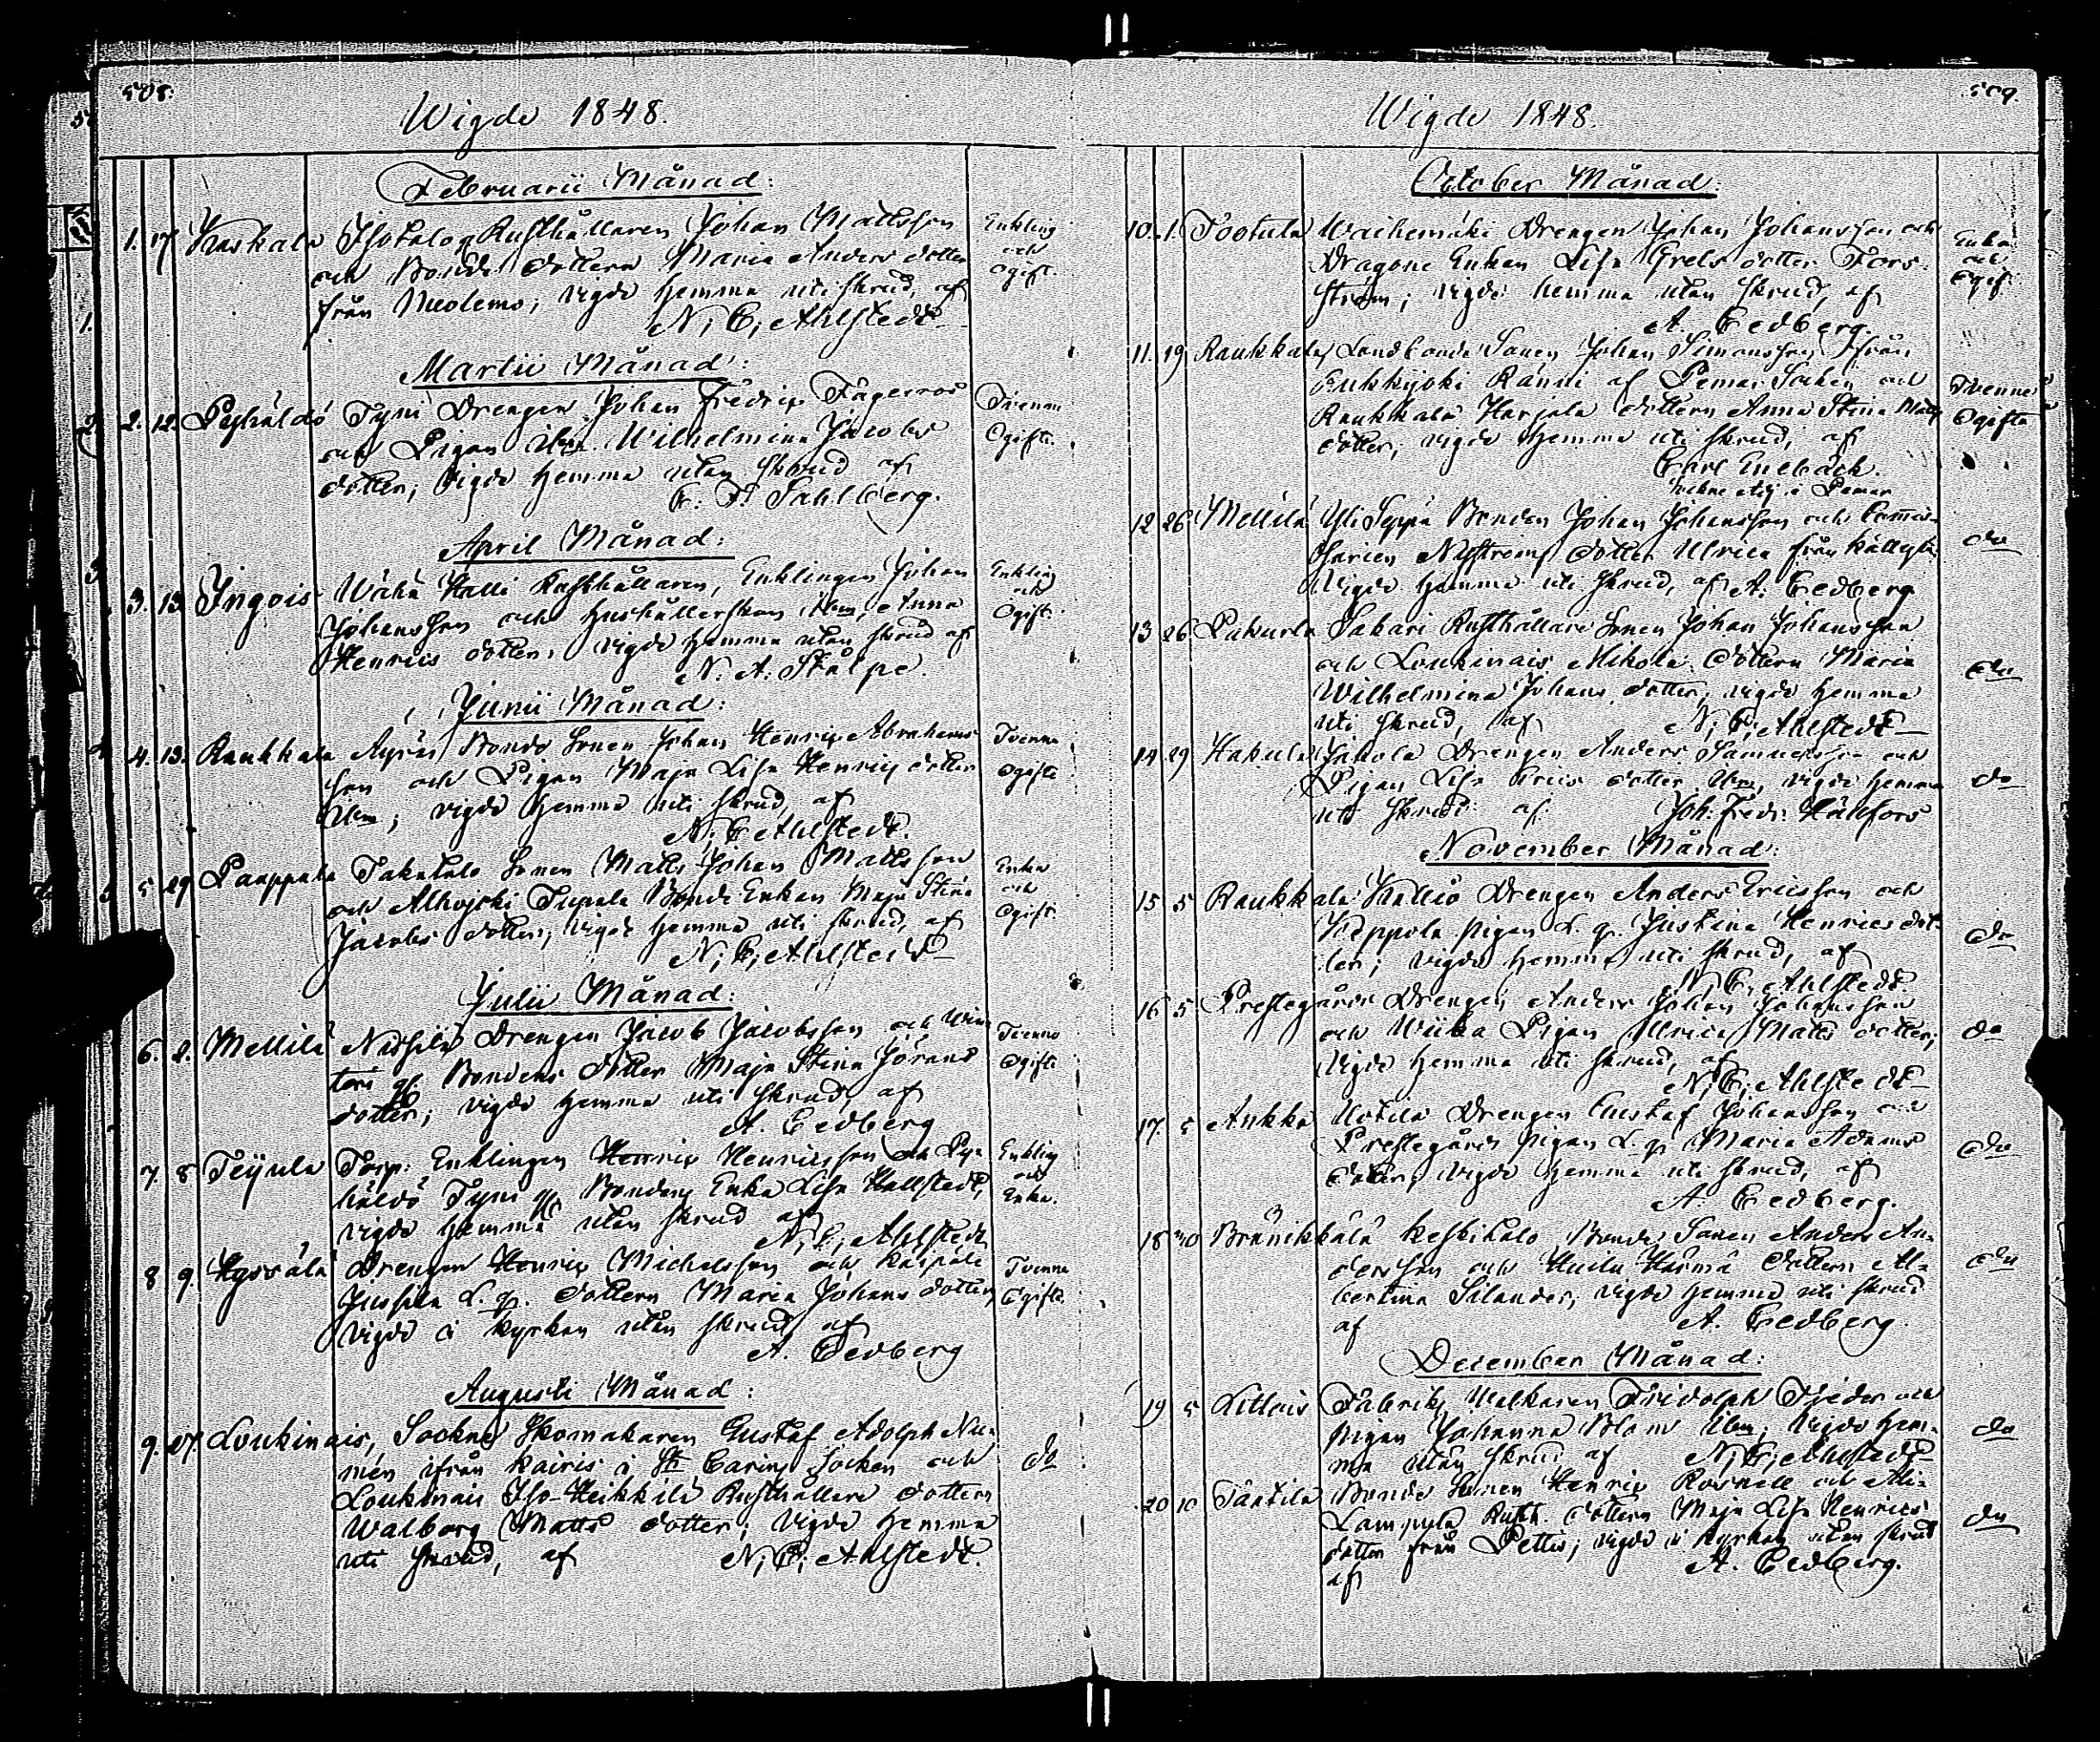 508.
Wigde 1848.
Februarii Månad:
1. 17 Kaskala Isotalo Rusthållaren Johan Mattsson Enkling
och Bonde dottern Maria Anders dotter och
från Nuolemo; vigde hemma uti skrud, af Ogift.
N; E; Ahlstedt
Martii Månad:
2. 12. Pyhäldö Tyni Drengen Johan Fredrix Fageros Tvenne
och Pigan ibm Wilhelmina Jacobs Ogifte.
dotter; vigde hemma utan skrud af
E. F. Sahlberg.
April Månad:
3. 13. Ingois Wähä Kalli Rusthållaren, Enklingen Johan Enkling
Johansson och hushållerskan ibm, Anna och
Henrics dotter, vigde hemma utan skrud af Ogift.
N. A. Stålpe.
Junii Månad:
4. 13. Raukkala Äyräs Bonde Sonen Johan Henrix Abrahams Tvenne
son och Pigan Maja Lisa Henrix dotter Ogifte
ibm; vigde hemma uti skrud, af
N; E Ahlstedt.
5 29 Paappala Takatalo Sonen Matts Johan Mattsson Enka
och Alhojoki Tupala Bonde Enkan Maja Stina och
Jacobs dotter; vigde hemma uti skrud, af Ogift
N; E; Ahlstedt
Julii Månad:
6. 2. Mellilä Drengen Jacob Jacobsson och Tvenne
Bondens dotter Maja Stina Jörans Ogifte
dotter; vigde hemma uti skrud, af
A. Cedberg
7. 8 Teijula Torp: Enklingen Henrix Henricsson och Py- Enkling
häldö Tyni Bondens Enka Lisa Hallstedt, och
vigde hemma utan skrud af Enka.
N; E; Ahlstedt
8 9. Drengen Henrix Michelsson och Tvenne
Jussila dottern Maria Johans dotter, Ogifte.
vigde i kyrkan utan skrud af
A. Cedberg
Augusti Månad:
9. 27. Loukinais, Sockne Skomakaren Gustaf Adolph Nu-
men ifrån Kairis i St Carins Socken och do
Loukinais Iso-Heikkilä Rusthållare dottern
Walborg Matts dotter; vigde hemma
uti skrud, af N; E; Ahlstedt.
509.
Wigde 1848.
October Månad:
10. 1. Tootula Waihemäki Drengen Johan Johansson och Enka
Dragone Enkan Lisa Grels dotter Fors- och
ström; vigde hemma utan skrud, af Ogift
A. Cedberg.
11. 19 Raukkala Landbonde Sonen Johan Simonsson ifrån
Kukkijoki Ränni af Pemar Socken och Tvenne
Raukkala Harjala dottern Anna Stina Matts Ogifta
dotter, vigde hemma uti skrud, af
Carl Enebäck.
Sockne Adj. i Pemar
12 26 Mellilä Yli Seppä Bonden Johan Johansson och Comis-
sarien Nyströms dotter Ulrica från do
vigde hemma uti skrud, af A. Cedberg
13 26 Pakurla Sakari Rusthållare Sonen Johan Johansson
och Loukinais Mikola dottern Maria do
Wilhelmina Johans dotter; vigde hemma
uti skrud, af N; E; Ahlstedt
14 29 Hakula Jakola Drengen Anders Samuelsson och
Pigan Lisa dotter ibm, vigde hemma do
uti skrud af Joh: Fredr:
November Månad:
15 5 Raukkala Kallio Drengen Anders Ericsson och
Keppola pigan Justina Henrics dot- do
ter; vigde hemma uti skrud, af
N; E; Ahlstedt
16 5 Prestegårds Drengen Anders Johan Johansson
och Wiika Pigan Ulrica Matts dotter; do
vigde hemma uti skrud, af
N; E; Ahlstedt
17. 5 Ankka Uotila Drengen Gustaf Johansson och
Prestegårds pigan Maria Adams do
dotter, vigde hemma uti skrud, af
A. Cedberg.
18 30 Bränikkälä Keskitalo Bonde Sonen Anders An-
dersson och Huilu Härmä dottern Al- do
bertina Silander, vigde hemma uti skrud
af A. Cedberg.
December Månad:
19 5 Littois Fabriks Valkaren Fridolph Tjeder och
pigan Johanna Blom ibm; vigde hem- do
ma utan skrud af N; E; Ahlstedt
20 10 Täntilä Bonde Sonen Henrix och Ali-
Lampula Rusth. dottern Maja Lisa Henrics do
dotter från Pettis; vigde i kyrkan utan skrud
af A. Cedberg.